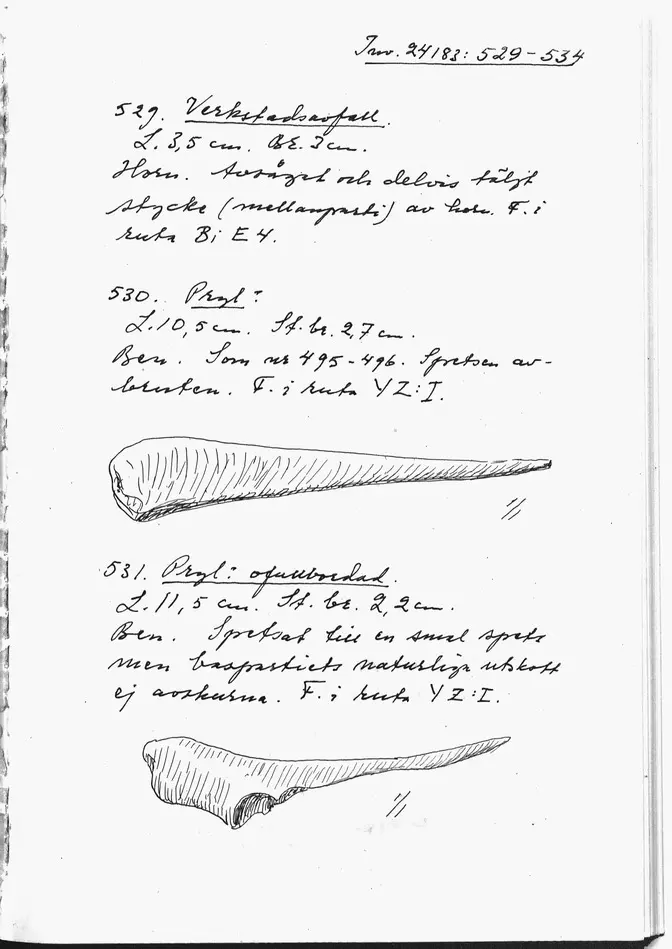 Inv. 24183: 529-534
529. Verkstadsavfall.
L. 3,5 cm. Br. 3 cm.
Horn. Avsågat och delvis täljt
stycke (mellanparti) av horn. F. i
ruta B; E 4.
530. Pryl?
L. 10,5 cm. St. br. 2,7 cm.
Ben. Som nr 495-496. Spetsen av-
bruten. F. i ruta YZ:I.
1/1
531. Pryl? ofullbordad.
L. 11,5 cm. St. br. 2,2 cm.
Ben. Spetsat till en smal spets
men baspartiets naturliga utskott
ej avskurna. F. i ruta YZ:I.
1/1